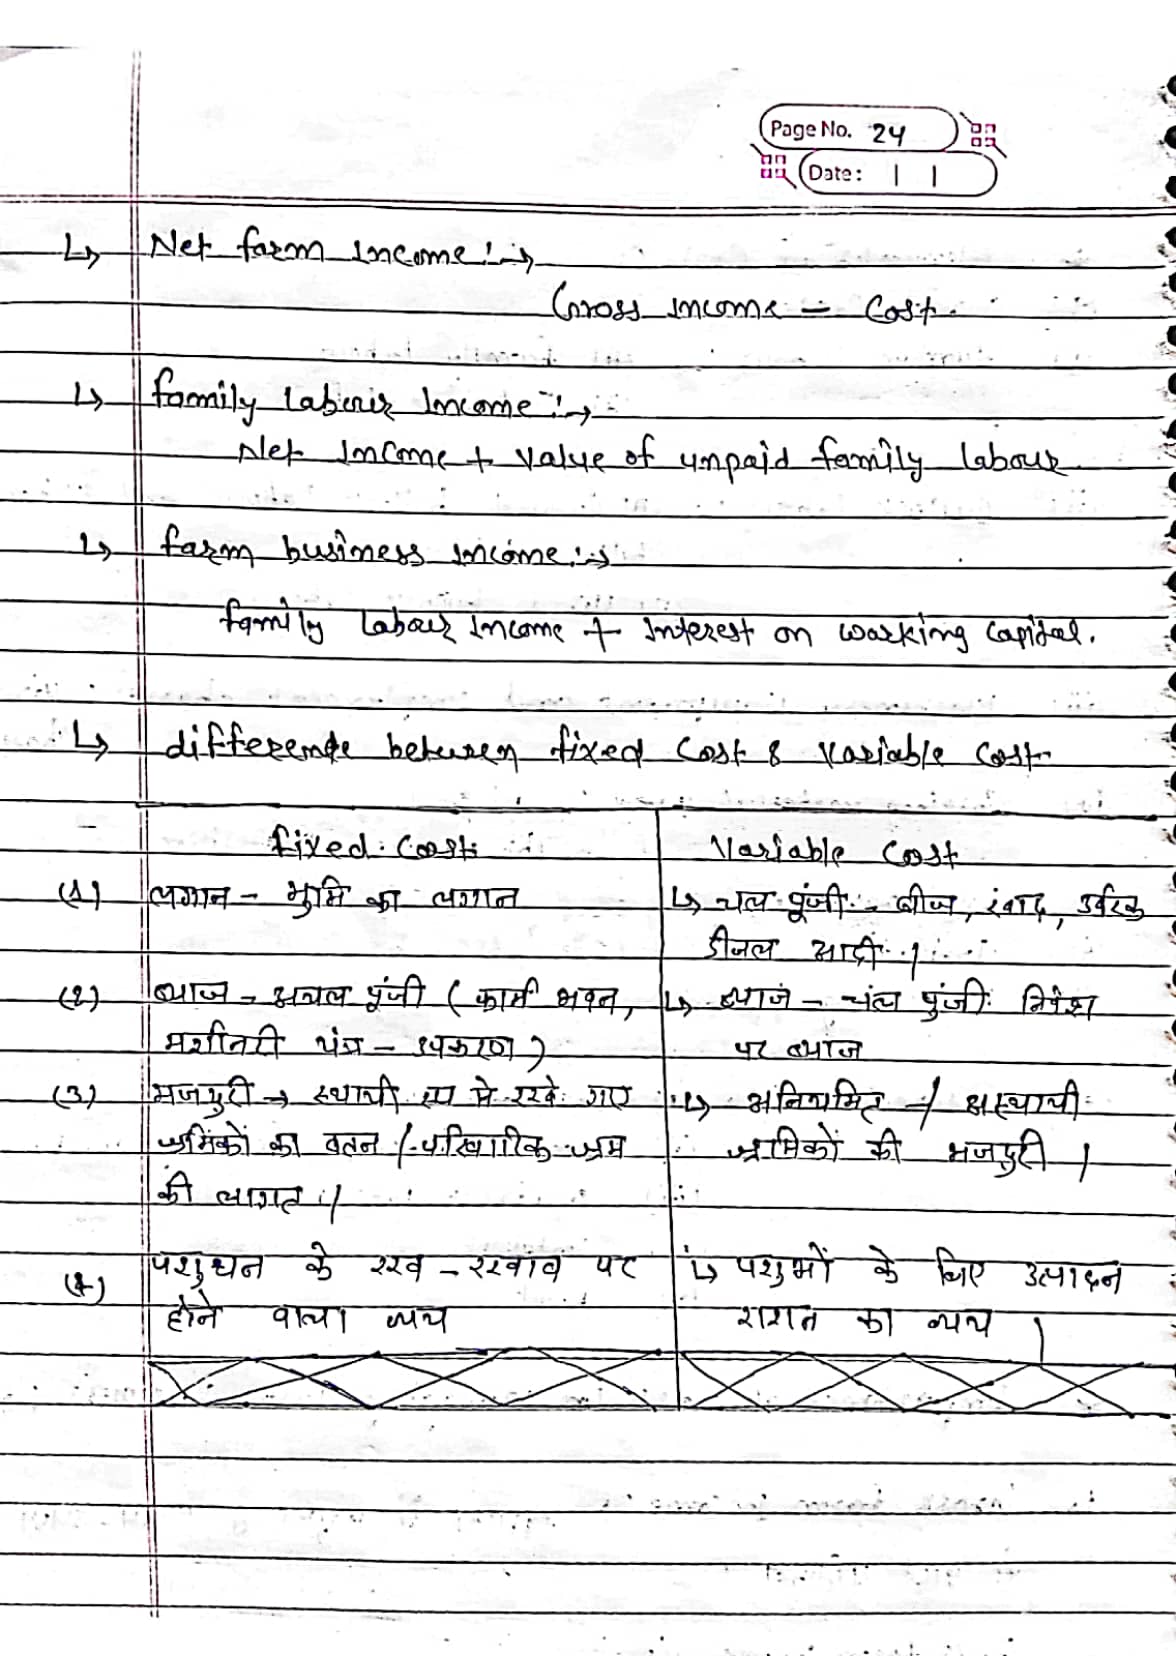 Page No. 24
Date: | |
↳ Net farm Income :→
Gross Income - Cost.
↳ family Labour Income :→
Net Income + value of unpaid family labour
↳ farm business Income :→
family Labour Income + Interest on working Capital.
↳ difference between fixed Cost & Variable Cost
fixed Cost Variable Cost
(1) लगान - भुमि का लगान ↳ चल पूंजी - बीज, खाद, उर्वरक
डीजल आदी ।
(2) ब्याज - अचल पूंजी ( फार्म भवन, ↳ ब्याज - चल पुंजी निवेश
मशीनरी यंत्र - उपकरण ) पर ब्याज
(3) मजदुरी → स्थायी रूप मे रखे गए ↳ अनियमित / अस्थायी
श्रमिकों का वेतन / परिवारिक श्रम श्रमिकों की मजदुरी ।
की लागत ।
(4) पशुधन के रख - रखाव पर ↳ पशुओं के लिए उत्पादन
होने वाला व्यय राशन का व्यय ।